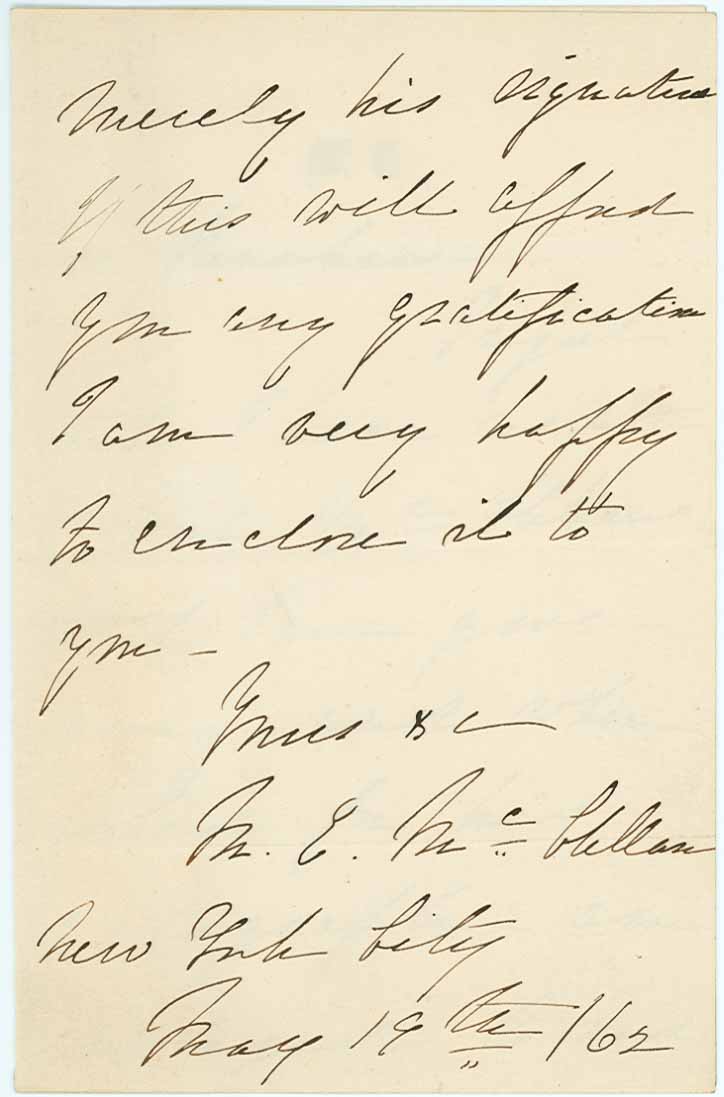 merely his signature
If this will afford
you any gratification
I am very happy
to enclose it to
you –
Yours &c
M. E. McClellan
New York City
May 19th /62